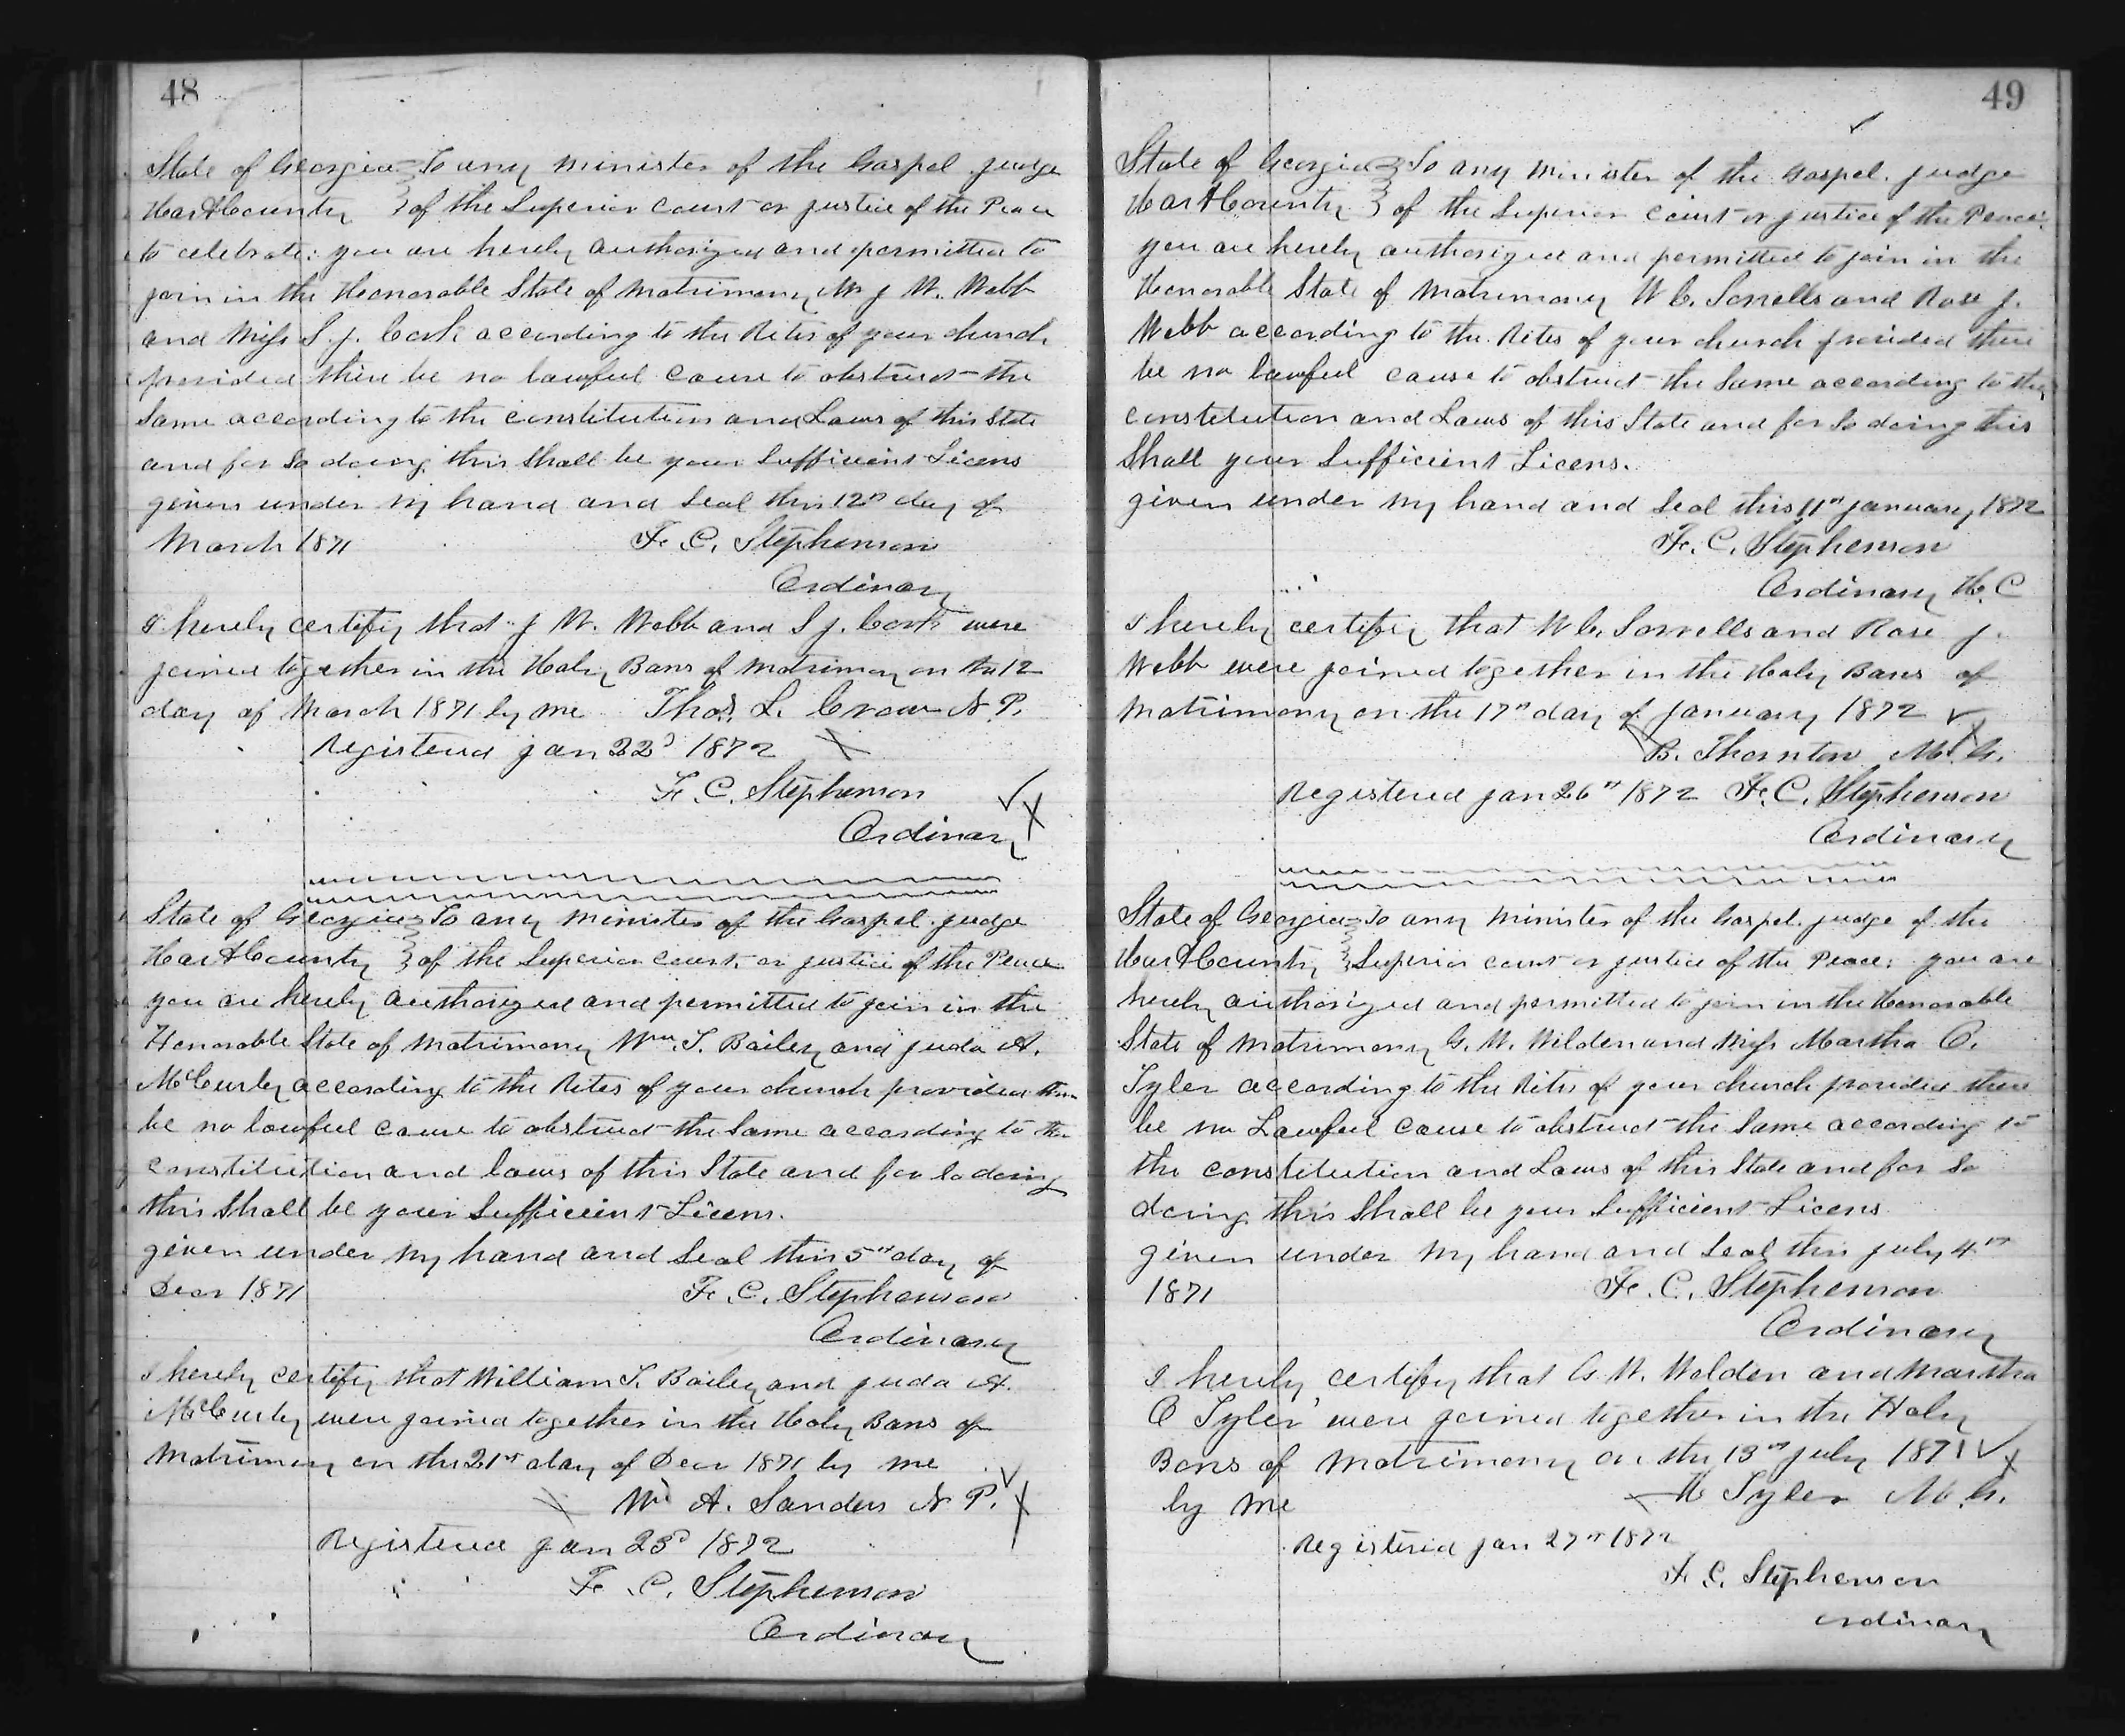 48
State of Georgia To any minister of the Gospel judge
Hart County of the Superior Court or justice of the Peace
to celebrate: you are hereby authorized and permitted to
join in the Honorable State of Matrimony Mr J W. Webb
and Miss S. J. according to the Rites of your church
provided there be no lawful cause to obstruct the
Same according to the constitution and Laws of this State
and for So doing this Shall be your Sufficient Licens
given under my hand and Seal this 12th day of
March 1871 F. C. Stephenson
Ordinary
I hereby certify that J W. Webb and S J. were
joined together in the Holy Bans of Matrimony on the 12
day of March 1871 by me Thos. L. Crow N. P.
Registered Jan 22d 1872
F. C. Stephenson
Ordinary
State of Georgia To any minister of the Gospel judge
Hart County of the Superior court or justice of the Peace
you are hereby authorized and permitted to join in the
Honorable State of Matrimony Wm. T. Bailey and Juda A.
McCurley according to the Rites of your church provided there
be no lawful cause to obstruct the Same according to the
constitution and laws of this State and for So doing
this Shall be your Sufficient Licens.
given under my hand and Seal this 5th day of
Decr 1871 F. C. Stephenson
Ordinary
I hereby certify that William T. Bailey and Juda A.
McCurley were joined together in the Holy Bans of
Matrimony on the 21st day of Decr 1871 by me
Wm A. Sanders N. P.
Registered Jan 23d 1872
F. C. Stephenson
Ordinary
49
State of Georgia To any Minister of the Gospel. judge
Hart County of the Superior Court or justice of the Peace:
you are hereby authorized and permitted to join in the
Honorable State of Matrimony W C. Sorrells and Rose J.
Webb according to the Rites of your church provided there
be no lawful cause to obstruct the Same according to the
constitution and Laws of this State and for So doing this
Shall your Sufficient Licens.
given under my hand and Seal this 11th January 1872
F. C. Stephenson
Ordinary H. C
I hereby certify that W C. Sorrells and Rose J.
Webb were joined together in the Holy Bans of
Matrimony on the 17th day of January 1872
B. Thornton M. G.
Registered Jan 26th 1872 F. C. Stephenson
Ordinary
State of Georgia To any Minister of the Gospel. judge of the
Hart County Superior court or justice of the Peace: you are
hereby authorized and permitted to join in the Honorable
State of Matrimony G. W. Wilden and Miss Martha C.
Tyler according to the Rites of your church provided there
be no Lawful cause to obstruct the Same according to
the constitution and Laws of this State and for So
doing this Shall be your Sufficient Licens
given under my hand and Seal this July 4th
1871 F. C. Stephenson
Ordinary
I hereby certify that G. W. Welden and Martha
C Tyler were joined together in the Holy
Bans of Matrimony on the 13th July 1871
by me Tyler M. G.
Registered Jan 27th 1872
F. C. Stephenson
ordinary